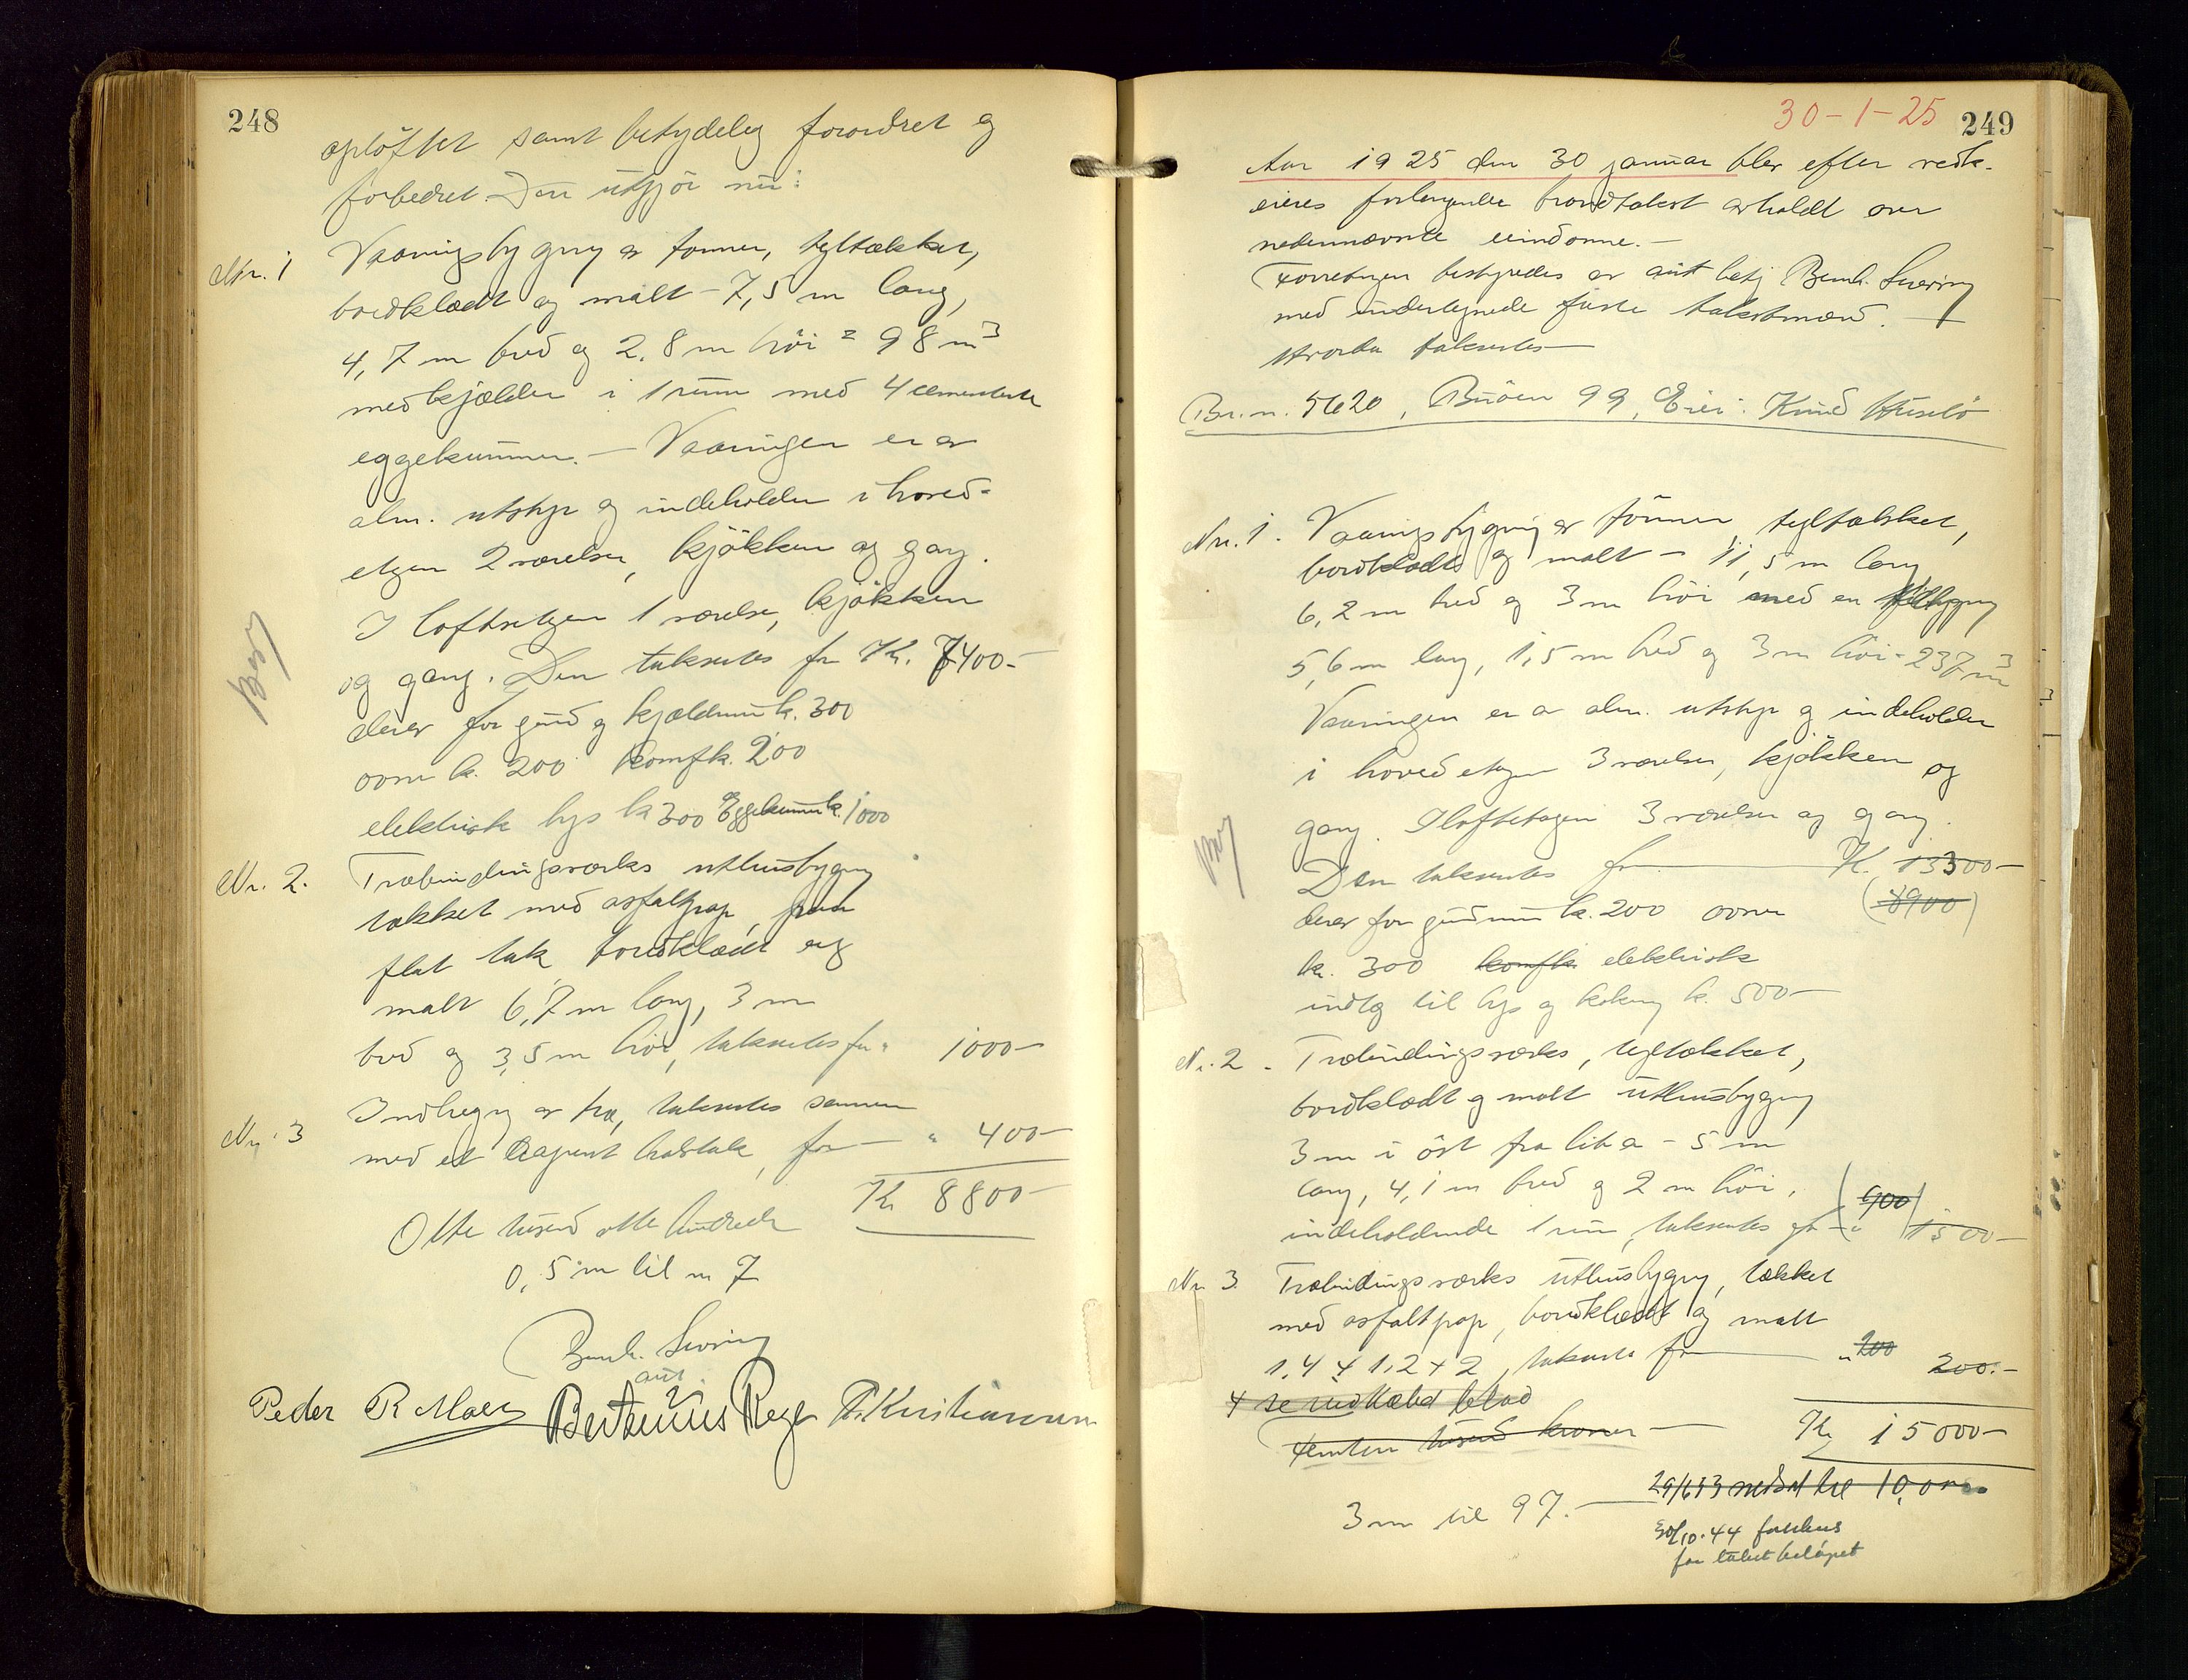 248
opløftet samt betydelig forandret og
forbedret. Den utgjør nu:
Nr. 1 Vaaningsbygning av tømmer, tegltækket,
bordklædt og malt - 7,5 m lang,
4,7 m bred og 2,8 m høi = 98 m³
med kjælder i 1 rum med 4 cementerte
eggekummer. - Vaaningen er av
alm. utstyr og indeholder i hoved-
etagen 2 værelser, kjøkken og gang.
I loftsetagen 1 værelse, kjøkken
og gang. Den takseres for Kr. 7400-
derav for grund og kjældermur k. 300
ovne k. 200 komf k. 200
elektrisk lys k 300 Eggekummer k. 1000
Nr. 2. Træbindingsværks uthusbygning
tækket med asfaltpap, paa
flat tak bordklædt og
malt 6,7 m lang, 3 m
bred og 3,5 m høi, takseres for " 1000-
Nr. 3 Indhegning av træ, takseres sammen
med et træpent halvtak, for - " 400-
Kr 8800-
Otte tusend otte hundrede
0,5 m til nr 7
Bernh. Svering
aut.
Peder R Moen Bertinius Rege P. Kristiansen
30-1-25
249
Aar 1925 den 30 januar blev efter vedk.
eieres forlangende brandtakst avholdt over
nedennævnte eiendomme. -
Forretningen bestyredes av aut betj Bernh. Svering
med undertegnede faste takstmænd. -
Hvorda takseres -
Br. n. 5620, Buøen 99, Eier: Knud Huselø
Nr. 1. Vaaningsbygning av tømmer, tegltækket,
bordklædt og malt - 11,5 m lang
6,2 m bred og 3 m høi med en tilbygning
5,6 m lang, 1,5 m bred og 3 m høi = 237 m³
Vaaningen er av alm. utstyr og indeholder
i hovedetagen 3 værelser, kjøkken og
gang. I loftetagen 3 værelser og gang.
Den takseres for - Kr. 13300-
derav for grundmur k. 200 ovner (8900)
k. 300 komfk. elektrisk
indlg til lys og kokning k. 500-
Nr. 2. Træbindingsværks, tegltækket,
bordklædt og malt uthusbygning
3 m i øst fra lit a - 5 m
lang, 4,1 m bred og 2 m høi, (900)
indeholdende 1 rum, takseres for - " 1500-
Nr 3. Træbindingsværks uthusbygning, tækket
med asfaltpap, bordklædt og malt
1,4 x 1,2 x 2, takseres for - " 200 200.-
x se vedhæted blad
Femten tusend kroner - Kr 15000-
29/6 33 nedsat til 10,000
3 m til 97. -
30/10.44 forhus
for takst beløpet